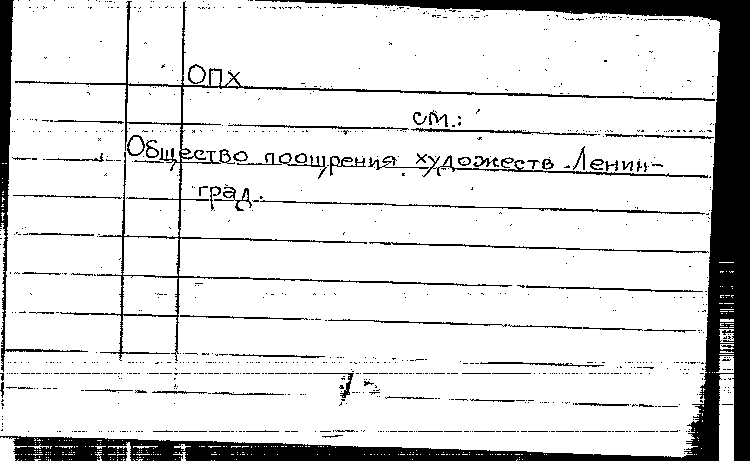 ОПХ
см.:
Общество поощрения художеств. Ленин-
град.